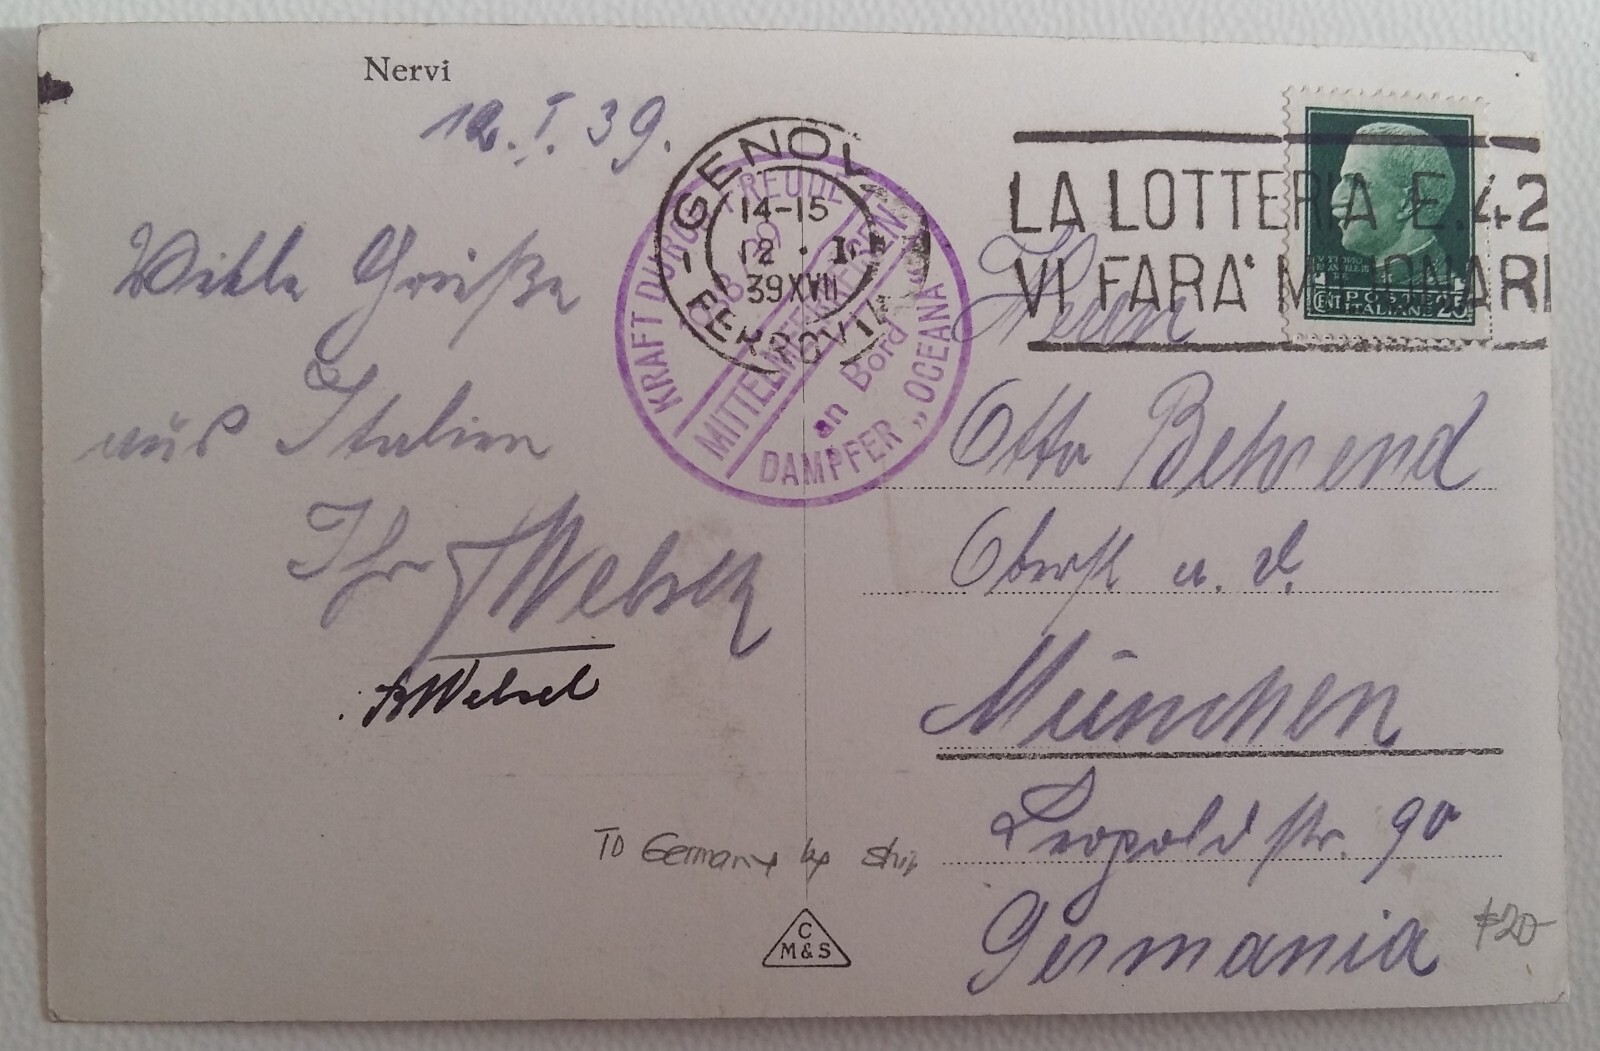 Nervi
12.I.39.
Viele Grüße
aus Italien
Ihr
GENOVA
14-15
12 . I
39XVII
FERROVIA
KRAFT DURCH FREUDE
MITTELMEERREISEN
an Bord
DAMPFER „OCEANA"
LA LOTTERIA E.42
VI FARA' MILIONARI
POSTE
ITALIANE
CENT 25
Herrn
Otto Behrend
Oberst a. D.
München
Leopoldstr. 90
Germania
To Germany by ship
$20-
C
M&S